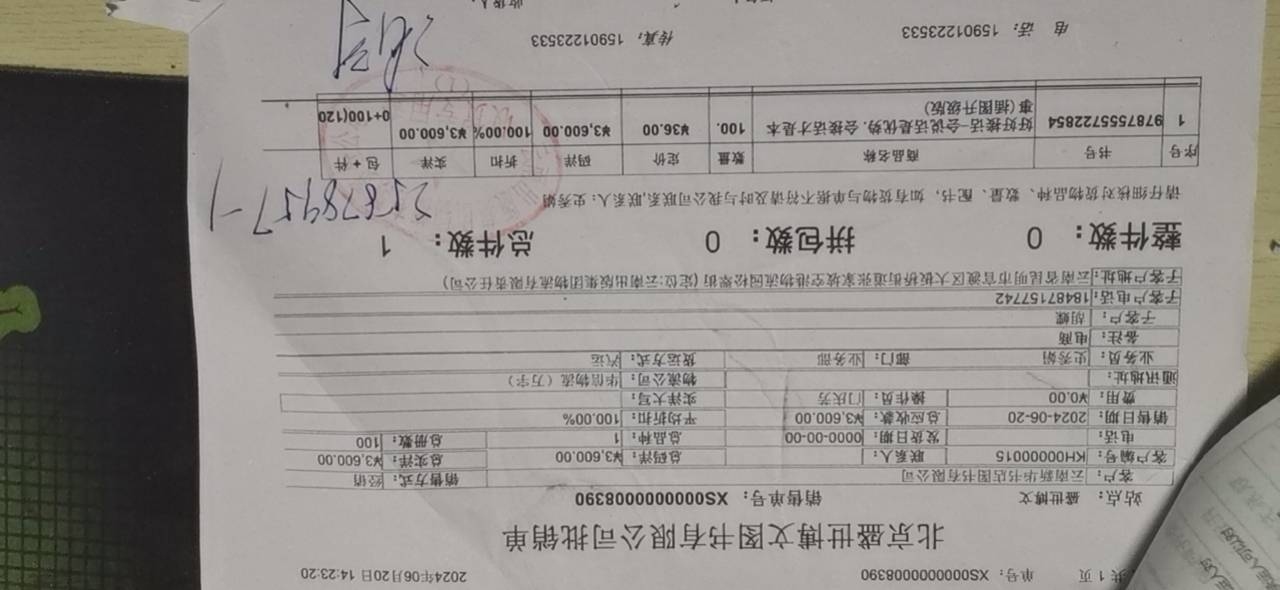 共 1 页 单号: XS0000000008390 2024年06月20日 14:23:20
北京盛世博文图书有限公司批销单
站点: 盛世博文 销售单号: XS0000000008390
客户: 云南新华书店图书有限公司 销售方式: 经销
客户编号: KH00000015 联系人: 总码洋: ¥3,600.00 总实洋: ¥3,600.00
电话: 发货日期: 0000-00-00 总品种: 1 总册数: 100
销售日期: 2024-06-20 总应收款: ¥3,600.00 平均折扣: 100.00%
费用: ¥0.00 操作员: 门庆芳 实洋大写:
通讯地址: 物流公司: 华信物流（万字）
业务员: 史秀娟 部门: 业务部 货运方式: 汽运
备注: 电商
子客户: 胡蝶
子客户电话: 18487157742
子客户地址: 云南省昆明市官渡区大板桥街道张家坡空港物流园松翠街 (定位:云南出版集团物流有限责任公司)
整件数: 0 拼包数: 0 总件数: 1
请仔细核对货物品种、数量、配书，如有货物与单据不符请及时与我公司联系,联系人: 史秀娟
25678957-1
序号 书号 商品名称 数量 定价 码洋 折扣 实洋 包+件
1 9787555722854 好好接话—会说话是优势, 会接话才是本 100. ¥36.00 ¥3,600.00 100.00% ¥3,600.00 0+100(120
事(插图升级版)
电 话: 15901223533 传真: 15901223533
收货人: